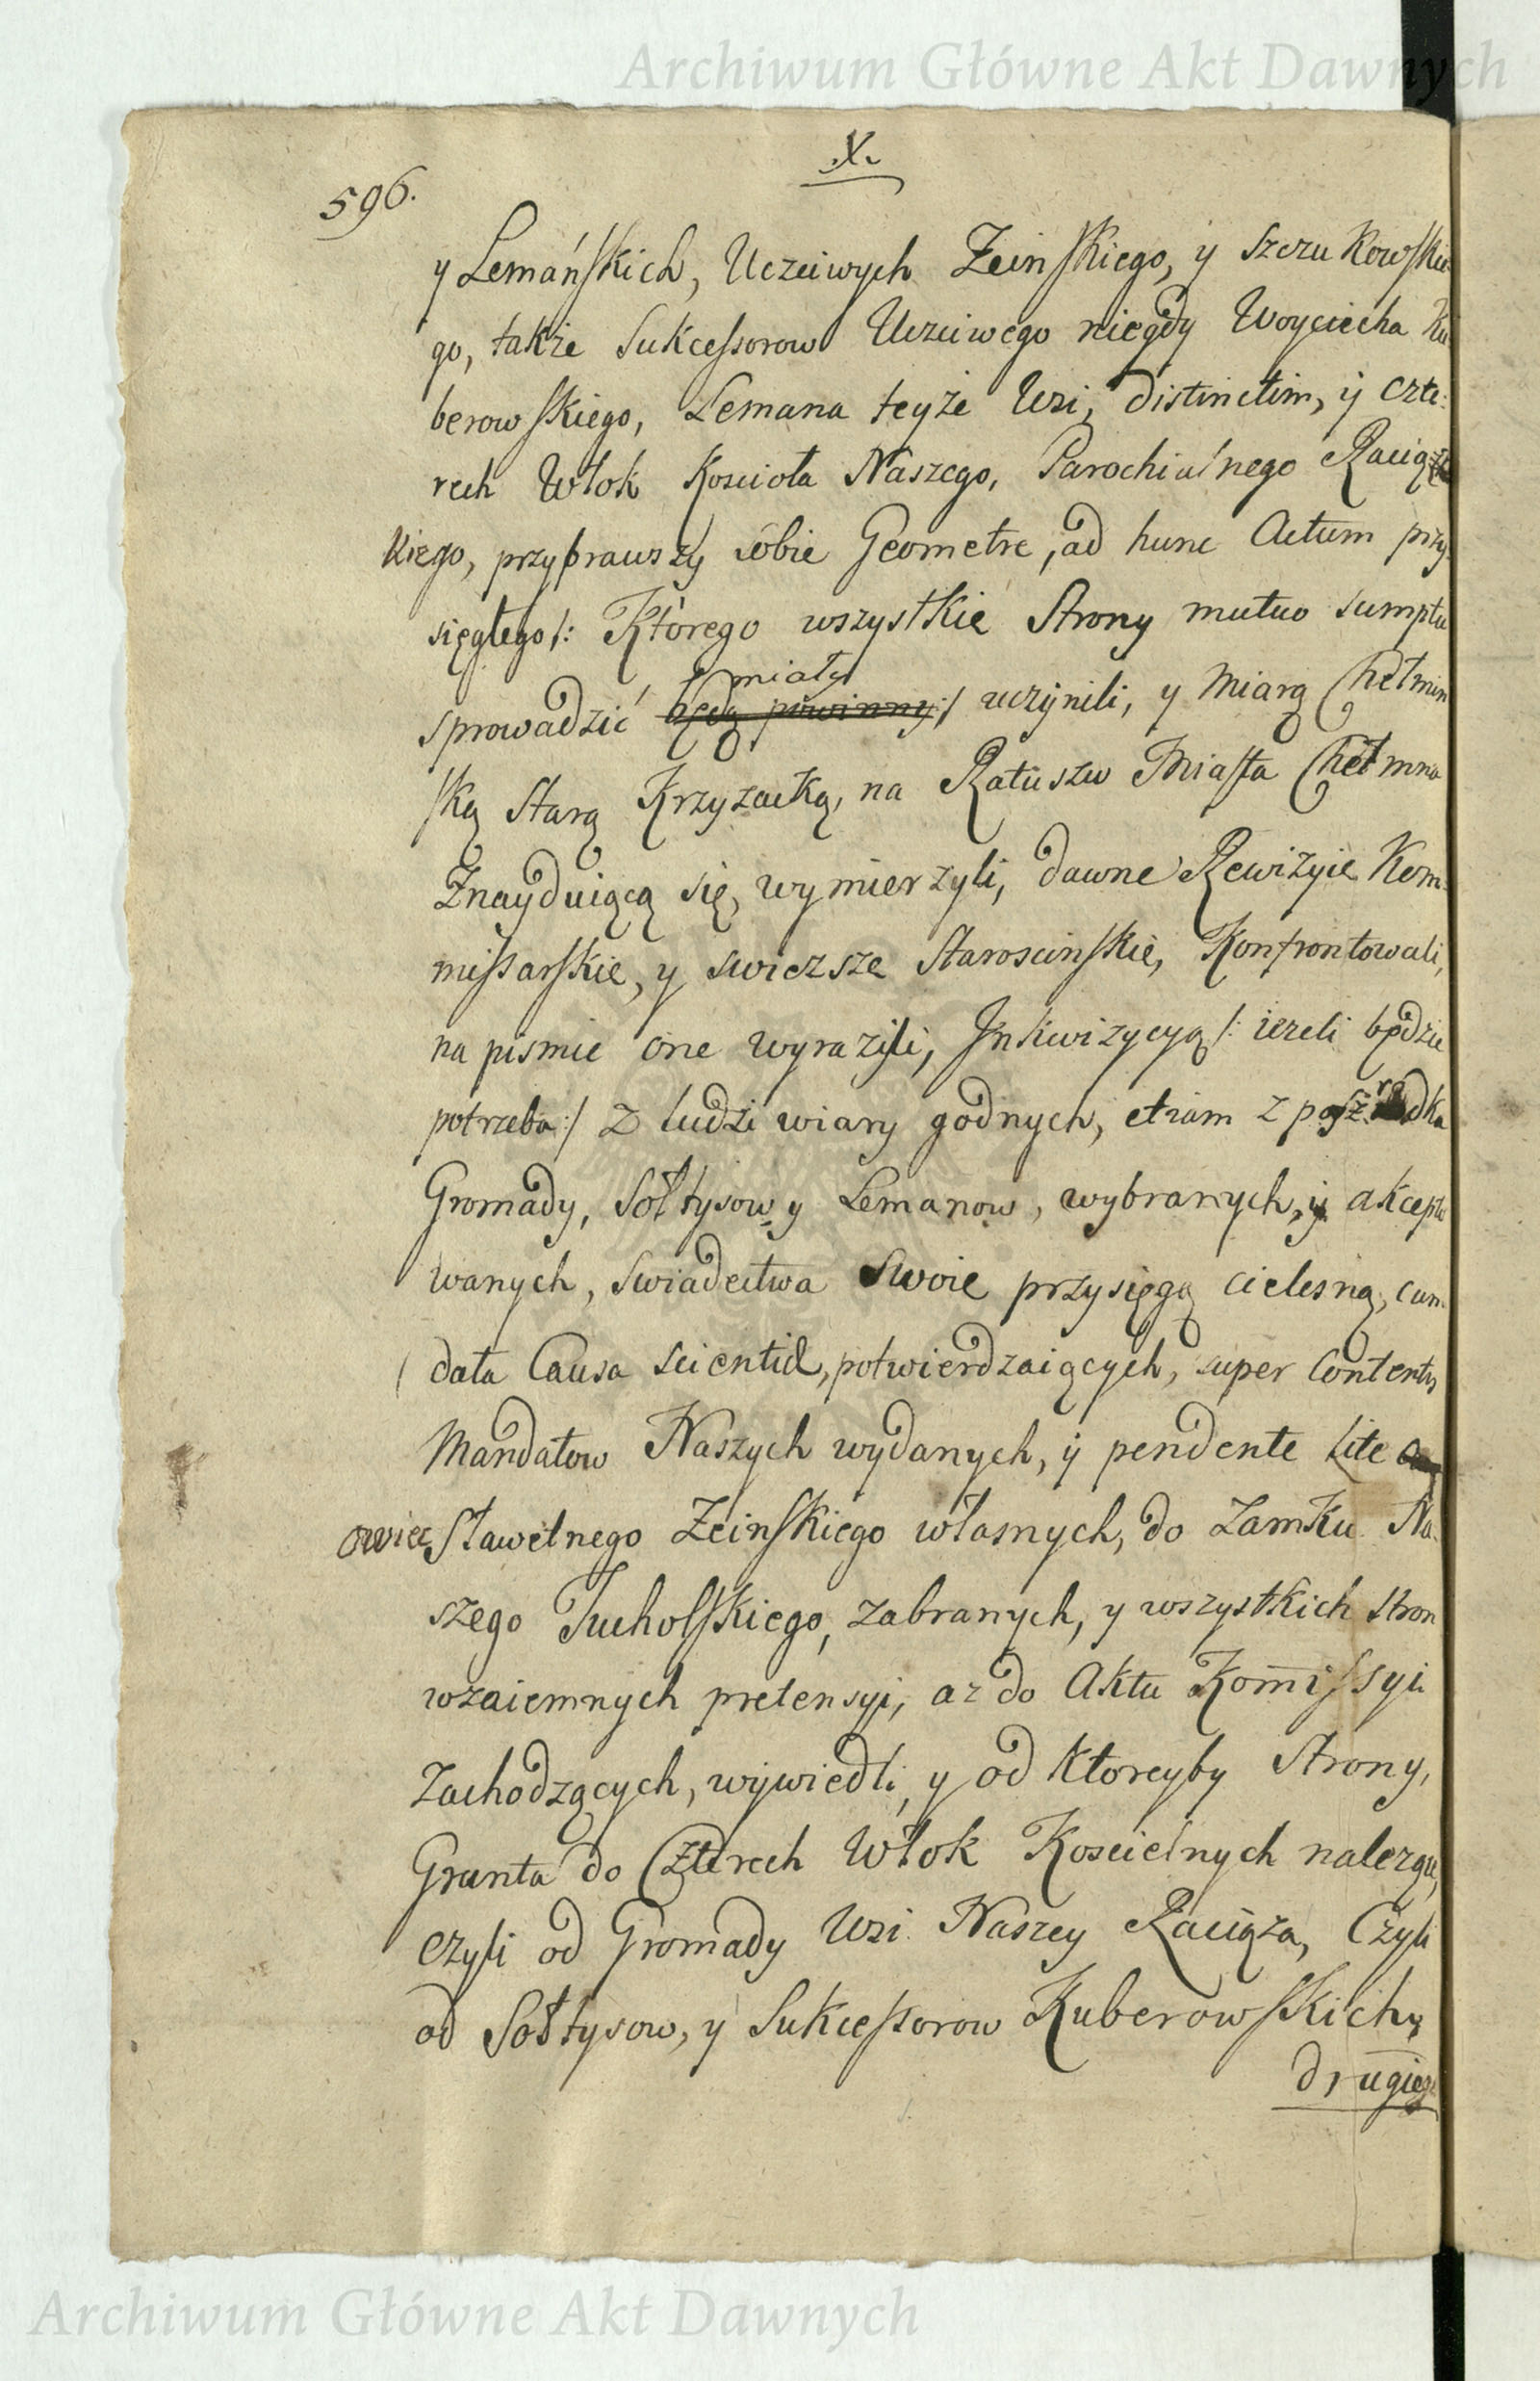 Archiwum Główne Akt Dawnych
.X.
596.
y Lemańskich, Uczciwych Zeinskiego, y Szczukowskie
go, także Sukcessorow Uczciwego niegdy Woyciecha Ku
berowskiego, Lemana teyże Wsi, distinctim, y czte:
rech Włok Koscioła Naszego, Parochialnego Raciąz
kiego, przybrawszy sobie Geometre, ad hunc Actum przy
sięgłego/: Ktorego wszystkie Strony mutuo sumptu
miały
sprowadzić będą powinny:/ uczynili, y Miarą Chełmin
ską Starą Krzyzacką, na Ratuszu Miasta Chełmna
Znayduiącą się, wymierzyli, dawne Rewizyie Kom:
missarskie, y swiezsze Staroscinskie, Konfrontowali,
na pismie one wyrazili, Inkwizycyą/: iezeli będzie
potrzeba:/ Z ludzi wiary godnych, etiam z posrzodka
Gromady, Sołtysow y Lemanow, wybranych, y akcepto
wanych, swiadectwa swoie przysięgą cielesną, cum
data Causa scientiæ, potwierdzaiących, super Contentis
Mandatow Naszych wydanych, y pendente Lite
owiec Sławetnego Zeinskiego własnych, do Zamku Na:
szego Tucholskiego, zabranych, y wszystkich stron
wzaiemnych pretensyi, az do Aktu Kom̄issyi
Zachodzących, wywiedli, y od Ktoreyby Strony,
Grunta do Czterech Włok Koscielnych nalezące,
czyli od Gromady Wsi Naszey Raciąza, Czyli
od Sołtysow, y Sukcessorow Kuberowskich,
drugiego
Archiwum Główne Akt Dawnych